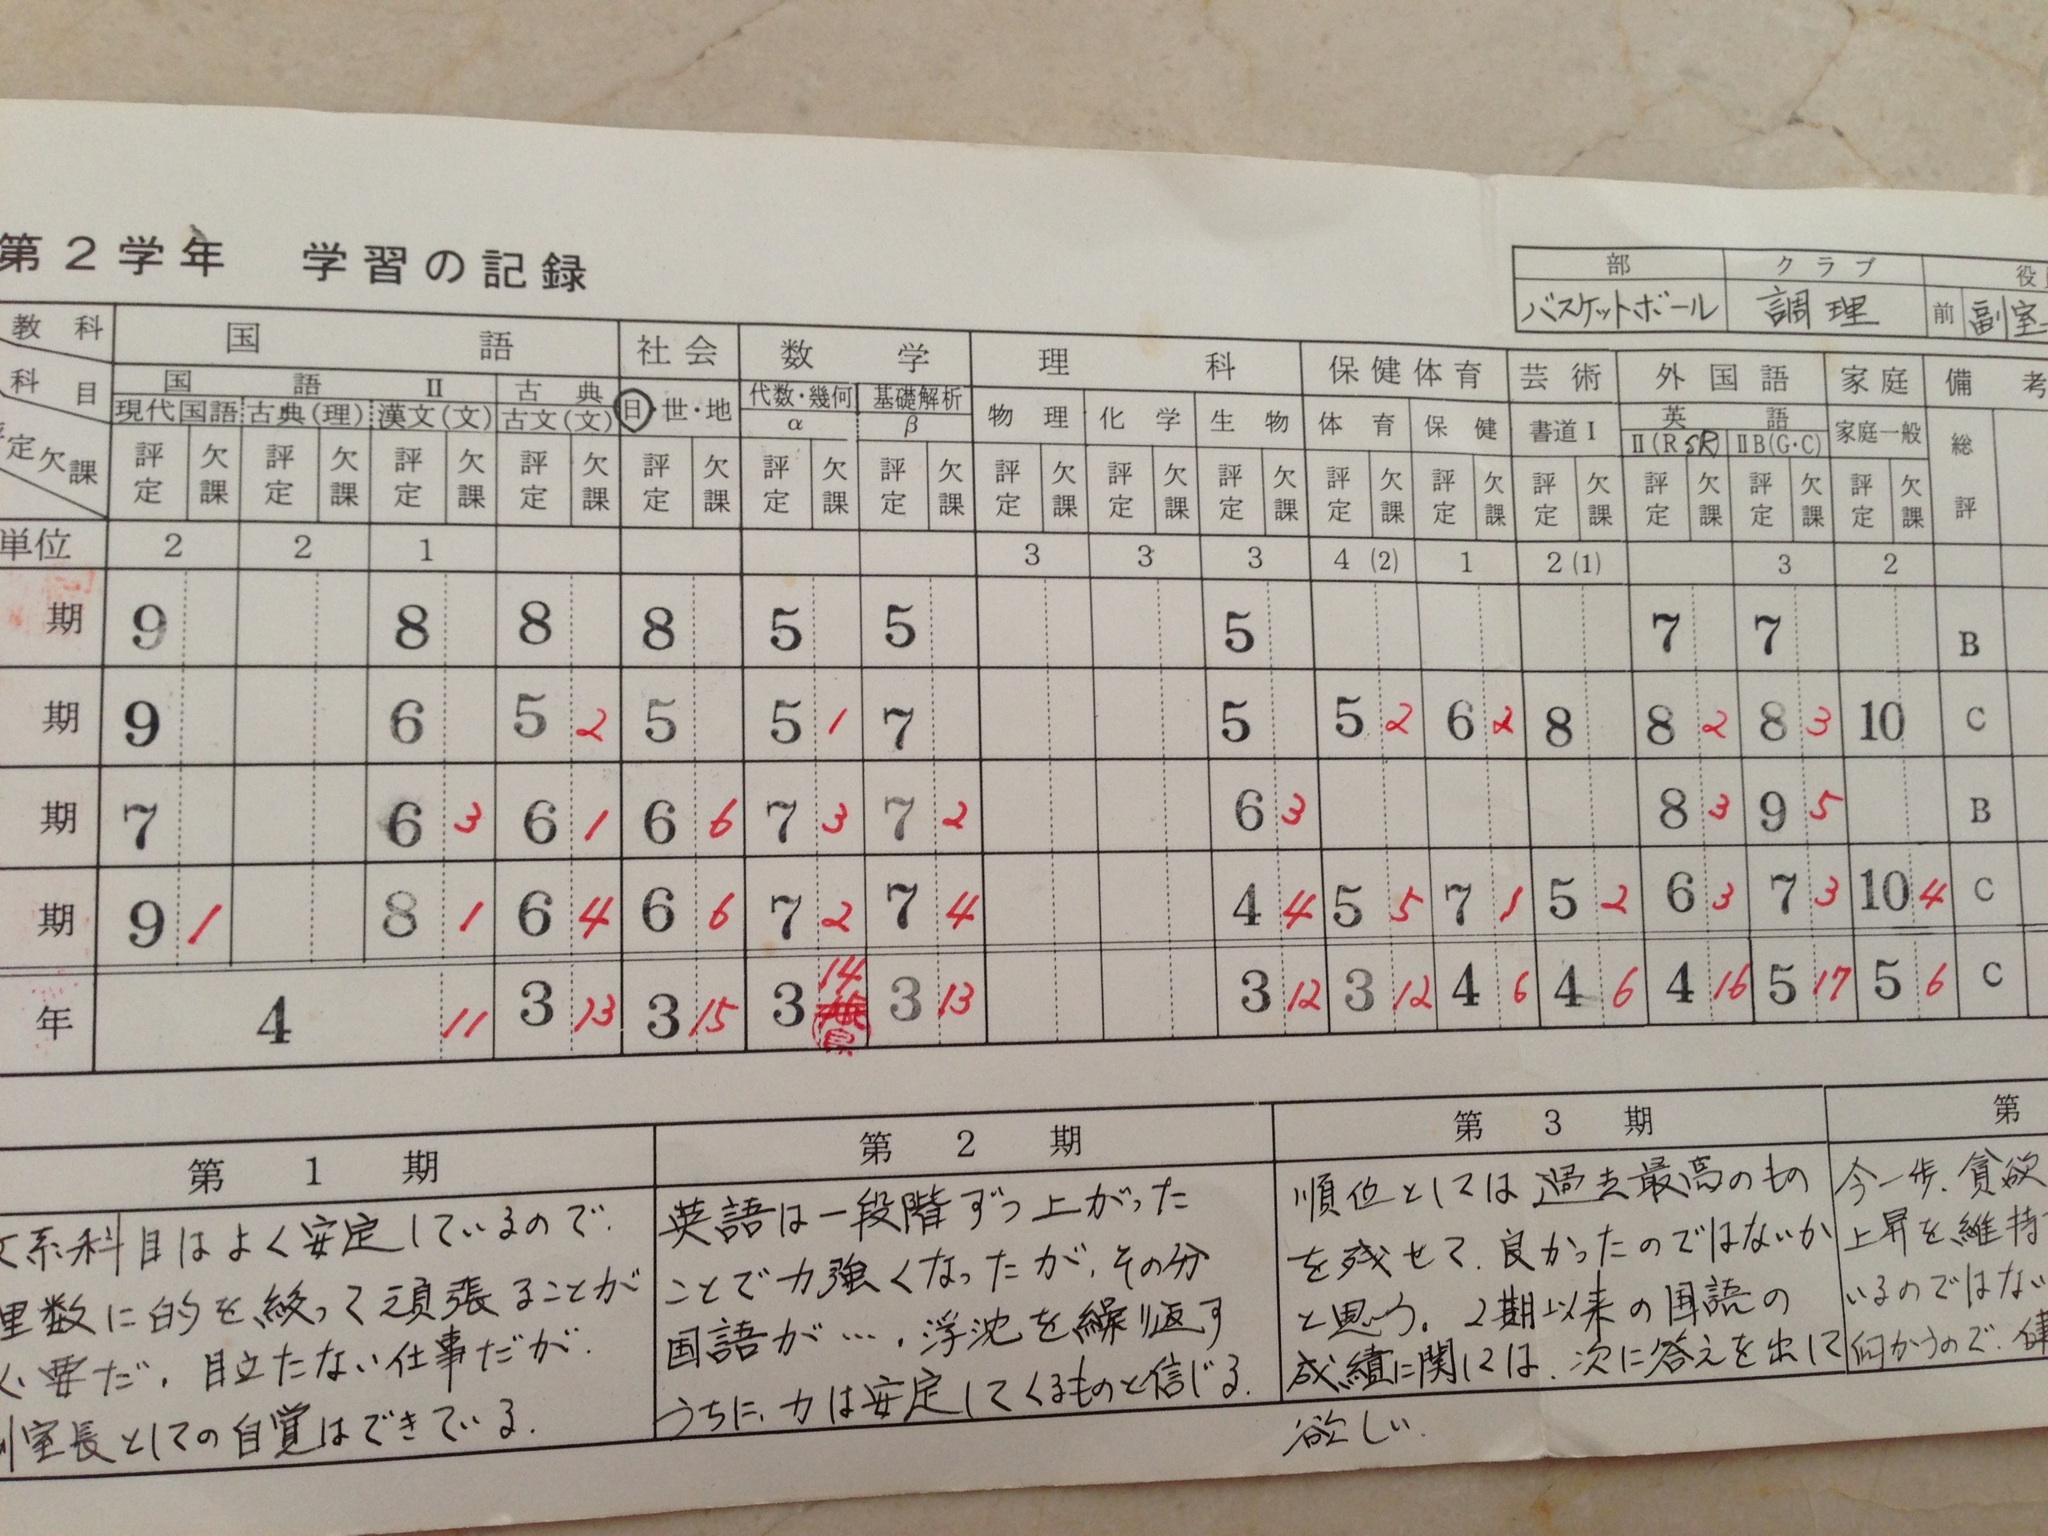 第2学年 学習の記録
部 クラブ
バスケットボール 調理 前 副室
教科 国語 社会 数学 理科 保健体育 芸術 外国語 家庭 備考
科目 国語Ⅱ 古典 日・世・地 代数・幾何 基礎解析 物理 化学 生物 体育 保健 書道Ⅰ 英語 家庭一般 総評
現代国語 古典(理) 漢文(文) 古文(文) α β Ⅱ(R SR) ⅡB(G・C)
定 欠課 評定 欠課 評定 欠課 評定 欠課 評定 欠課 評定 欠課 評定 欠課 評定 欠課 評定 欠課 評定 欠課 評定 欠課 評定 欠課 評定 欠課 評定 欠課 評定 欠課 評定 欠課 評定 欠課
単位 2 2 1 3 3 3 4 (2) 1 2 (1) 3 2
期 9 8 8 8 5 5 5 7 7 B
期 9 6 5 2 5 5 1 7 5 5 2 6 2 8 8 2 8 3 10 C
期 7 6 3 6 1 6 6 7 3 7 2 6 3 8 3 9 5 B
期 9 1 8 1 6 4 6 6 7 2 7 4 4 4 5 5 7 1 5 2 6 3 7 3 10 4 C
年 4 11 3 13 3 15 3 14 3 13 3 12 3 12 4 6 4 6 4 16 5 17 5 6 C
第1期
系科目はよく安定しているので、
数に的を絞って頑張ることが
要だ。目立たない仕事だが、
室長としての自覚はできている。
第2期
英語は一段階ずつ上がった
ことで力強くなったが、その分
国語が…。浮沈を繰り返す
うちに、力は安定してくるものと信じる。
第3期
順位としては過去最高のもの
を残せて、良かったのではないか
と思う。2期以来の国語の
成績に関しては、次に答えを出して
欲しい。
第
今一歩、貪欲
上昇を維持
いるのではない